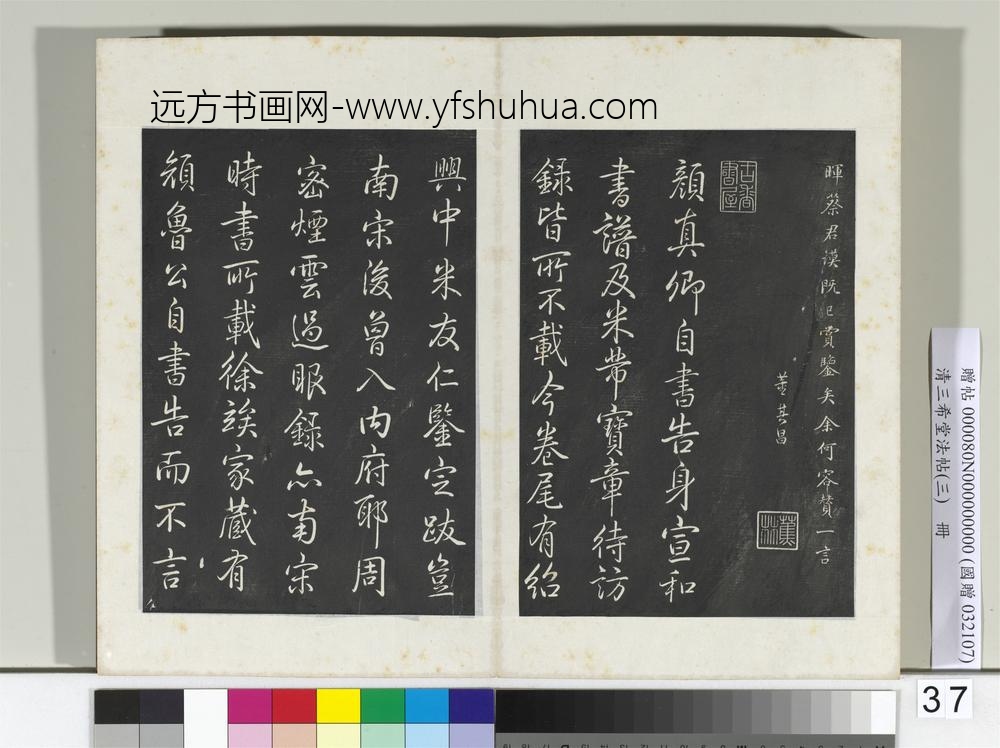 远方书画网-www.yfshuhua.com
暉蔡君謨既已賞鑒矣余何容贅一言
董其昌
顏真卿自書告身宣和
書譜及米芾寶章待訪
錄皆所不載今卷尾有紹
興中米友仁鑒定跋豈
南宋後曾入內府耶周
密煙雲過眼錄亦南宋
時書所載徐容齋家藏有
顏魯公自書告而不言
贈帖 000080N000000000 (國贈 032107)
清三希堂法帖(三) 冊
37